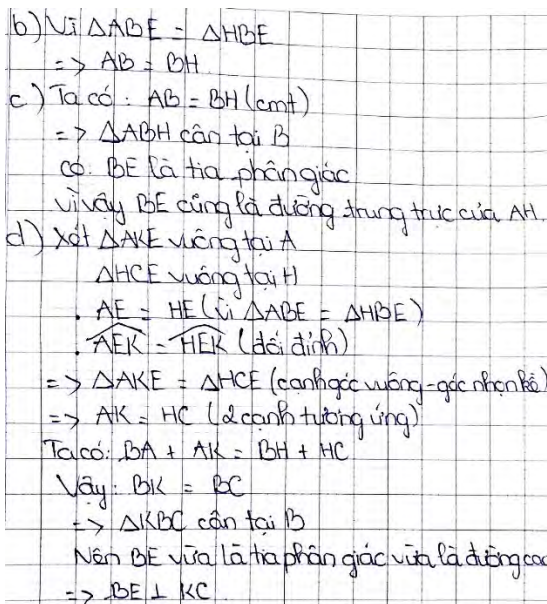 b) Vì ΔABE = ΔHBE
=> AB = BH
c) Ta có: AB = BH (cmt)
=> ΔABH cân tại B
có BE là tia phân giác
vì vậy BE cũng là đường trung trực của AH.
d) Xét ΔAKE vuông tại A
ΔHCE vuông tại H
. AE = HE (vì ΔABE = ΔHBE)
. \widehat{AEK} = \widehat{HEK} (đối đỉnh)
=> ΔAKE = ΔHCE (cạnh góc vuông - góc nhọn kề)
=> AK = HC (2 cạnh tương ứng)
Ta có: BA + AK = BH + HC
Vậy: BK = BC
=> ΔKBC cân tại B
Nên BE vừa là tia phân giác vừa là đường cao
=> BE ⊥ KC